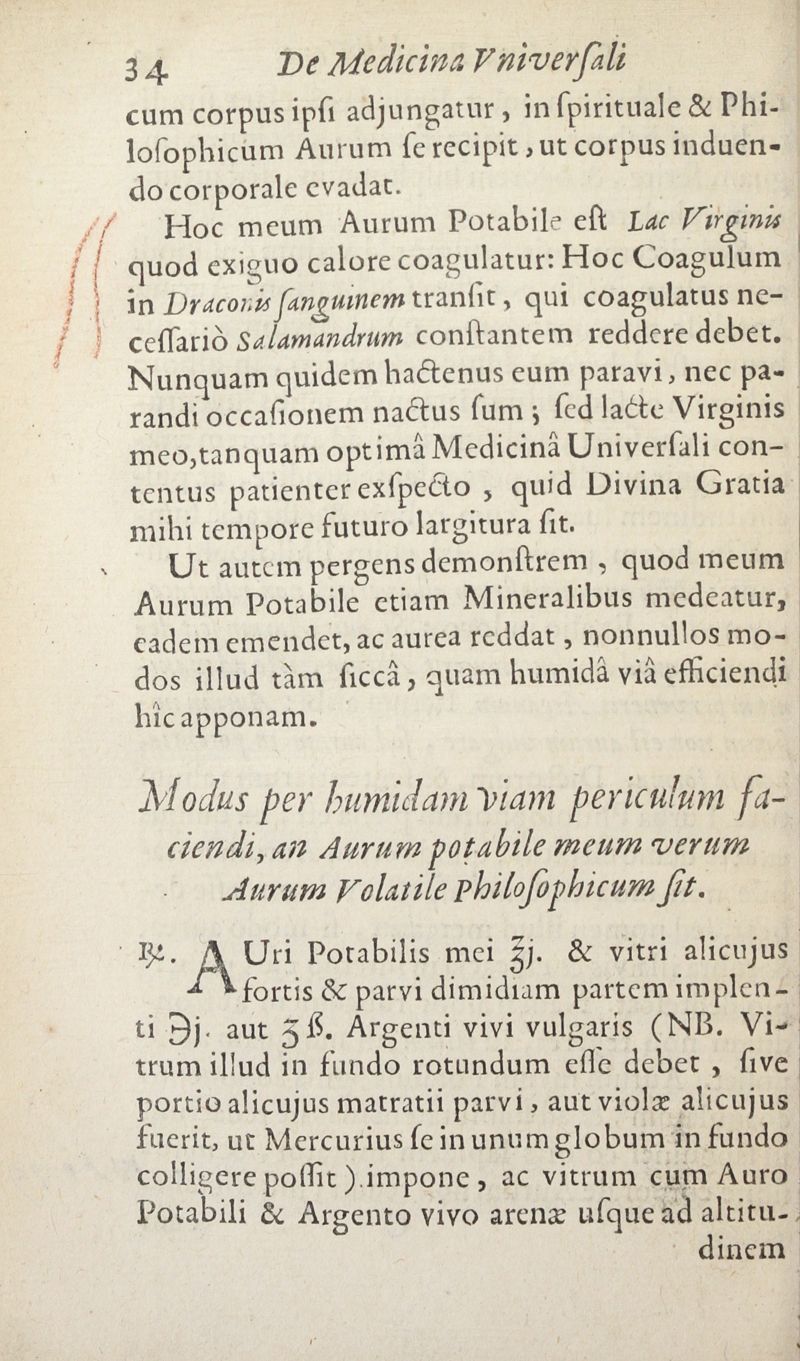 34 De Medicina Vniverſali
cum corpus ipſi adjungatur, in ſpirituale & Phi-
loſophicum Aurum ſe recipit, ut corpus induen-
do corporale evadat.
Hoc meum Aurum Potabile eſt Lac Virginis
quod exiguo calore coagulatur: Hoc Coagulum
in Draconis ſanguinem tranſit, qui coagulatus ne-
ceſſariò Salamandrum conſtantem reddere debet.
Nunquam quidem hactenus eum paravi, nec pa-
randi occaſionem nactus ſum; ſed lacte Virginis
meo, tanquam optimâ Medicinâ Univerſali con-
tentus patienter exſpecto, quid Divina Gratia
mihi tempore futuro largitura ſit.
Ut autem pergens demonſtrem, quod meum
Aurum Potabile etiam Mineralibus medeatur,
eadem emendet, ac aurea reddat, nonnullos mo-
dos illud tàm ſiccâ, quam humidâ viâ efficiendi
hîc apponam.
Modus per humidam viam periculum fa-
ciendi, an Aurum potabile meum verum
Aurum Volatile Philoſophicum ſit.
℞. AUri Potabilis mei ℥j. & vitri alicujus
fortis & parvi dimidiam partem implen-
ti ℈j. aut ʒß. Argenti vivi vulgaris (NB. Vi-
trum illud in fundo rotundum eſſe debet, ſive
portio alicujus matratii parvi, aut violæ alicujus
fuerit, ut Mercurius ſe in unum globum in fundo
colligere poſſit). impone, ac vitrum cum Auro
Potabili & Argento vivo arenæ uſque ad altitu-
dinem